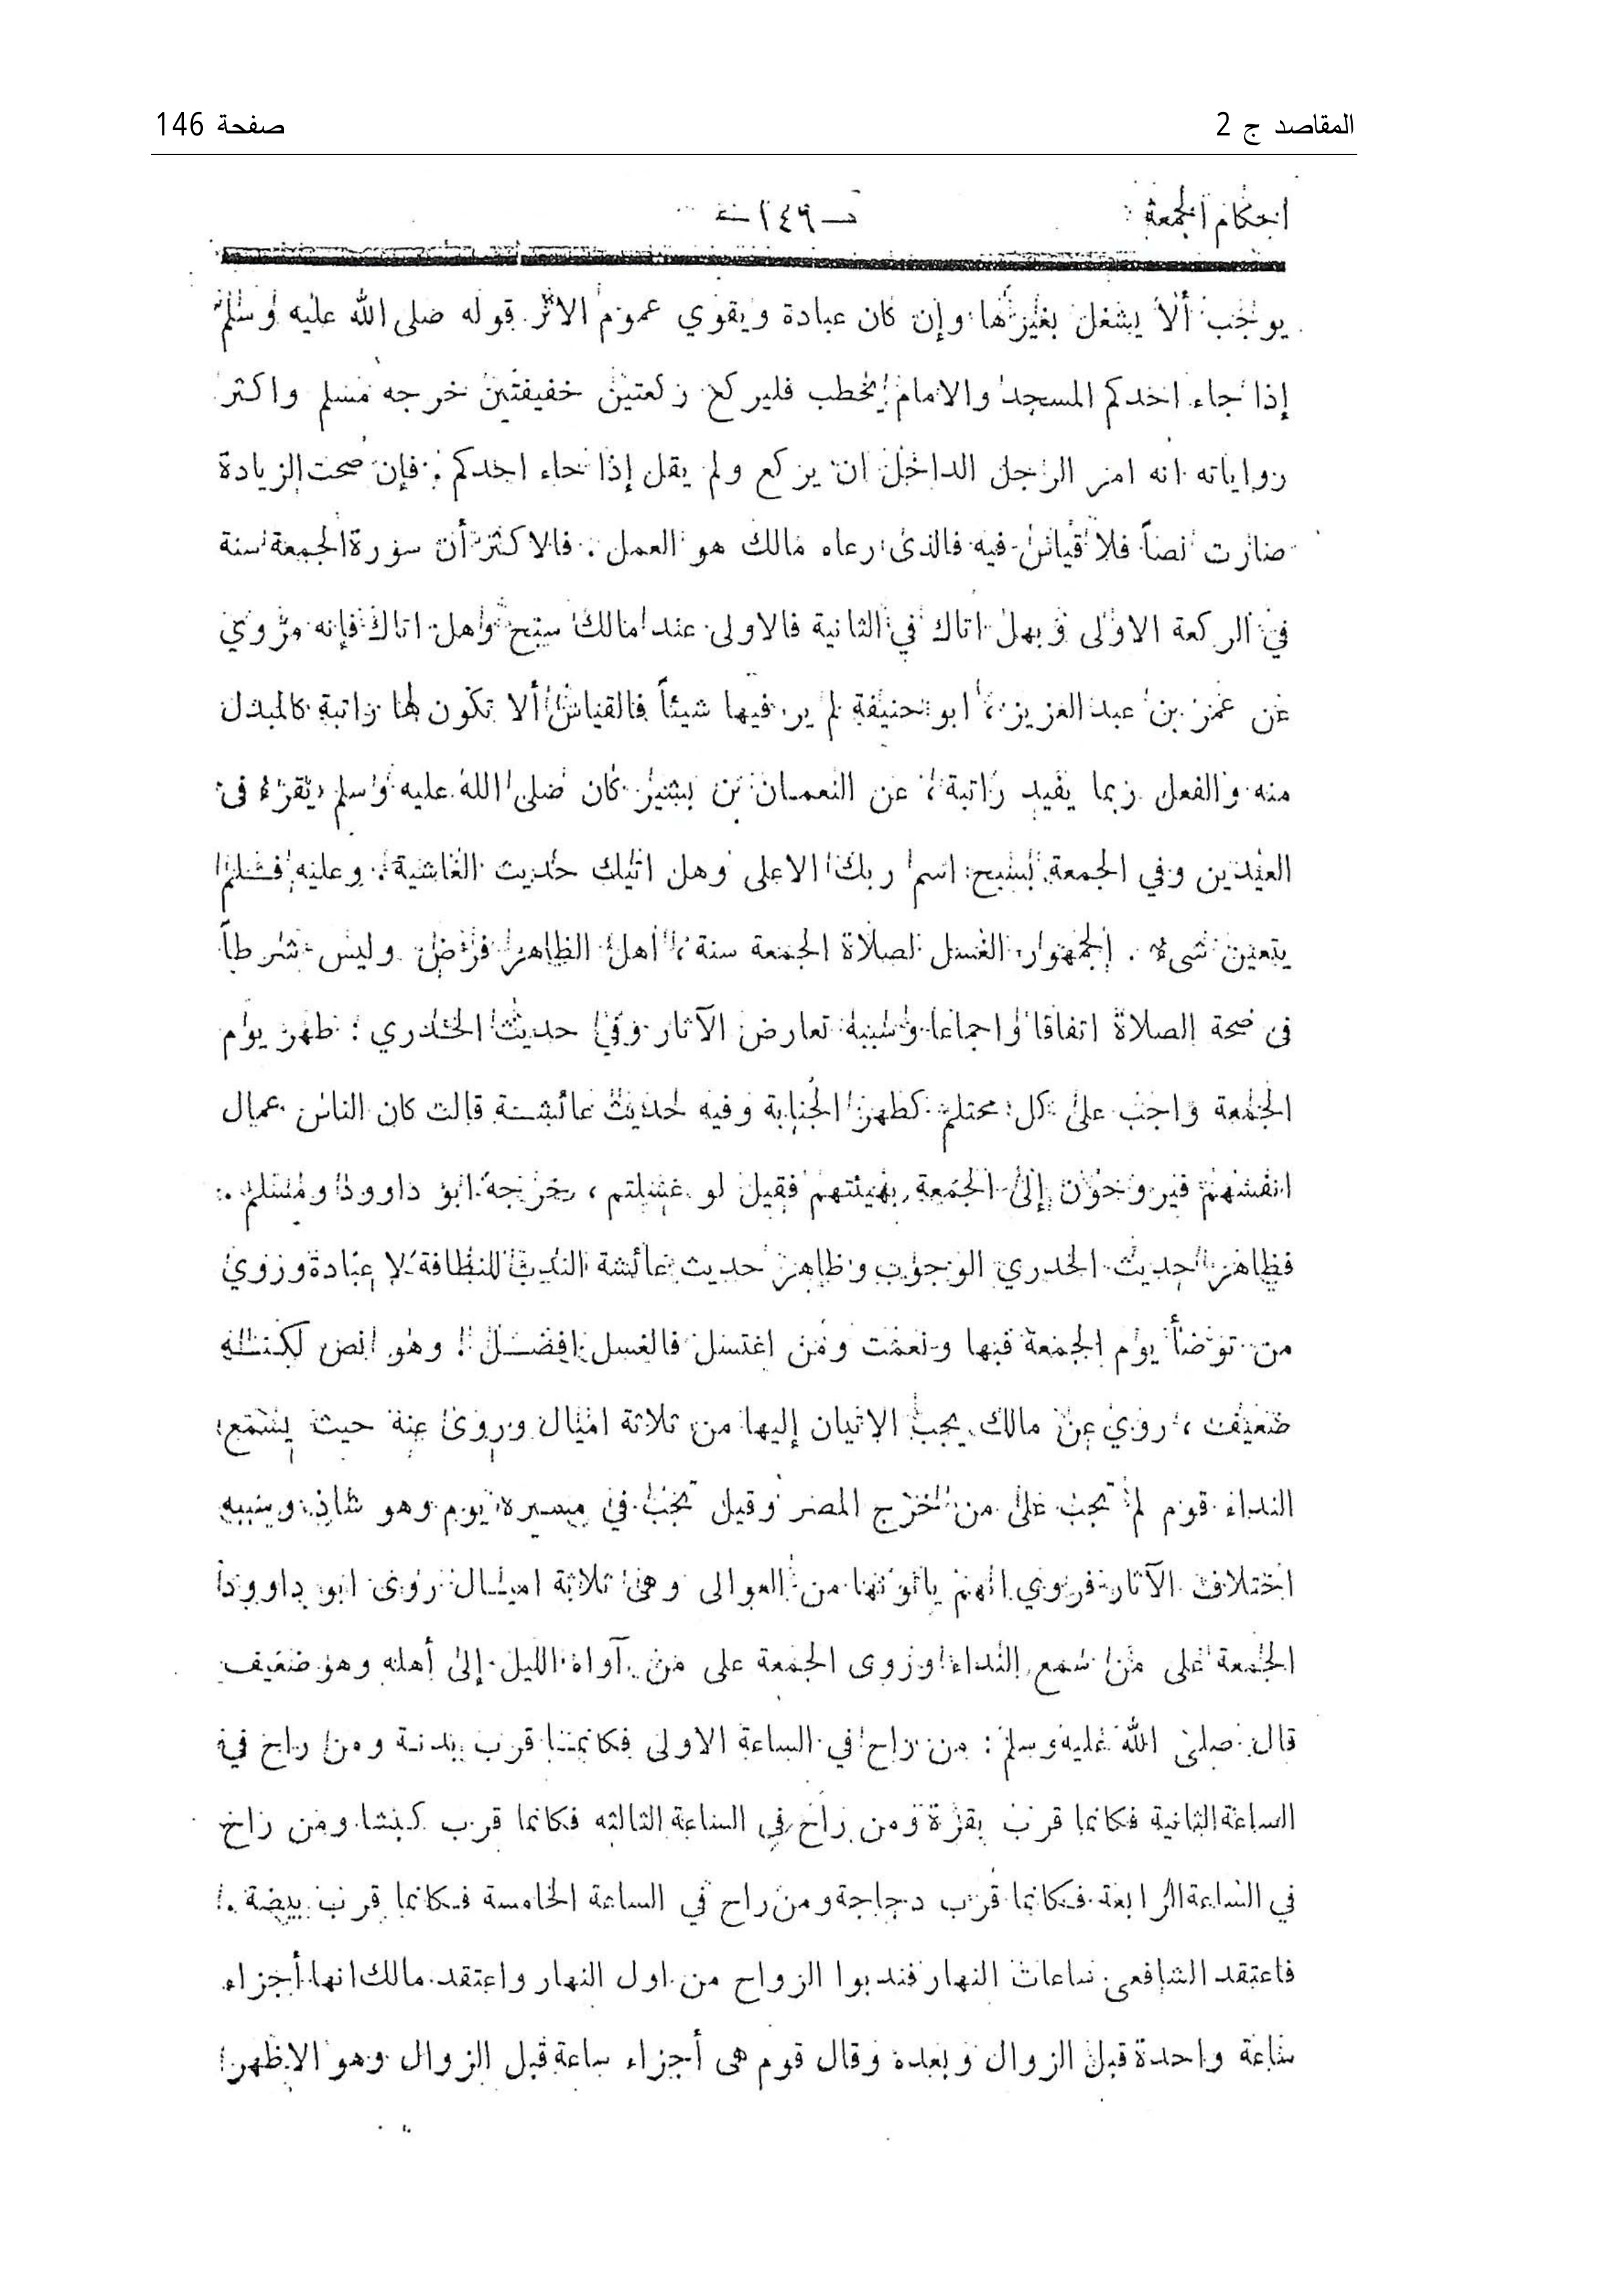 المقاصد ج 2
صفحة 146
احكام الجمعة
— ١٤٦ —
يوجب ألا يشغل بغيرها وإن كان عبادة ويقوي عموم الاثر قوله صلى الله عليه وسلم
إذا جاء احدكم المسجد والامام يخطب فليركع ركعتين خفيفتين خرجه مسلم واكثر
رواياته انه امر الرجل الداخل ان يركع ولم يقل إذا جاء احدكم . فإن صحت الزيادة
صارت نصاً فلا قياس فيه فالذى رعاه مالك هو العمل . فالاكثر أن سورة الجمعة سنة
في الركعة الاولى وبهل اتاك في الثانية فالاولى عند مالك سبح وهل اتاك فإنه مروي
عن عمر بن عبد العزيز ، ابو حنيفة لم ير فيها شيئاً فالقياس ألا تكون لها راتبة كالمبدل
منه والفعل ربما يفيد راتبة ، عن النعمان بن بشير كان صلى الله عليه وسلم يقرء فى
العيدين وفي الجمعة بسبح اسم ربك الاعلى وهل اتيك حديث الغاشية . وعليه فسلم
يتعين شىء . الجمهور الغسل لصلاة الجمعة سنة ، اهل الظاهر فرض وليس شرطاً
فى صحة الصلاة اتفاقا واجماعا وسببه تعارض الآثار وفي حديث الخدري : طهر يوم
الجمعة واجب على كل محتلم كطهر الجنابة وفيه حديث عائشة قالت كان الناس عمال
انفسهم فيروحون إلى الجمعة بهيئتهم فقيل لو غسلتم ، خرجه ابو داوود ومسلم .
فظاهر حديث الخدري الوجوب وظاهر حديث عائشة الندب للنظافة لا عبادة وروي
من توضأ يوم الجمعة فبها ونعمت ومن اغتسل فالغسل افضل . وهو انص لكنه
ضعيف ، روي عن مالك يجب الإتيان إليها من ثلاثة اميال وروى عنه حيث يسمع
النداء قوم لم تجب على من خرج المصر وقيل تجب في مسيره يوم وهو شاذ وسببه
اختلاف الآثار فروي انهم ياتونها من العوالى وهى ثلاثة اميال روى ابو داوود
الجمعة على من سمع النداء وروى الجمعة على من آواه الليل إلى أهله وهو ضعيف
قال صلى الله عليه وسلم : من راح في الساعة الاولى فكانما قرب بدنة ومن راح في
الساعة الثانية فكانما قرب بقرة ومن راح في الساعة الثالثه فكانما قرب كبشا ومن راح
في الساعة الرابعة فكانما قرب دجاجة ومن راح في الساعة الخامسة فكانما قرب بيضة .
فاعتقد الشافعى ساعات النهار فندبوا الرواح من اول النهار واعتقد مالك انها أجزاء
ساعة واحدة قبل الزوال وبعده وقال قوم هى أجزاء ساعة قبل الزوال وهو الاظهر